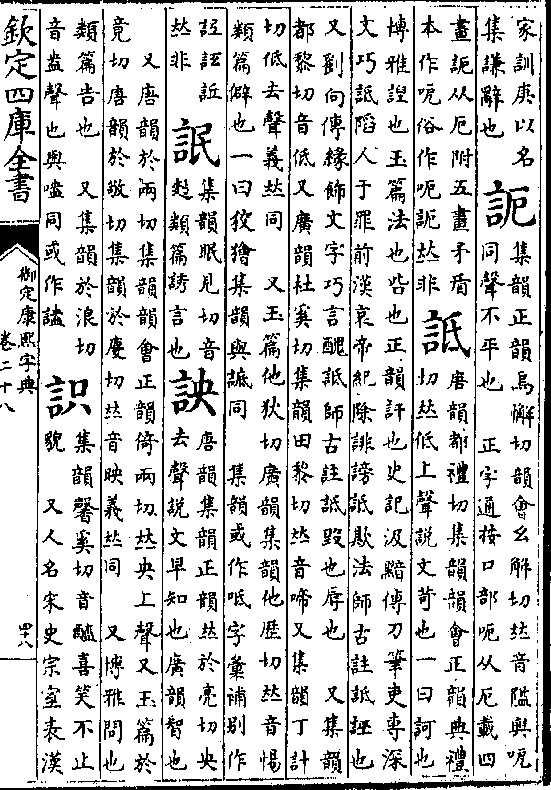 家訓庾以名
集謙辭也
集韻正韻烏懈切韻會幺解切𠀤音隘與呃
同聲不平也　正字通按口部呃从厄載四
畫从厄附五畫矛盾
本作呃俗作呝𠀤非
詆
唐韻都禮切集韻韻會正韻典禮
切𠀤低上聲說文苛也一曰訶也
博雅也玉篇法也呰也正韻訐也史記汲黯傳刀筆吏專深
文巧詆陷人于罪前漢哀帝紀除誹謗詆欺法師古註詆誣也
又劉向傳緣飾文字巧言醜詆師古註詆毀也辱也　又集韻
都黎切音低又廣韻杜奚切集韻田黎切𠀤音啼又集韻丁計
切低去聲義𠀤同　又玉篇他狄切廣韻集韻他歷切𠀤音惕
類篇僻也一曰狡獪集韻與同　集韻或作呧字彙補別作
𠀤非
集韻眠見切音
麪類篇誘言也
詇
唐韻集韻正韻𠀤於亮切央
去聲說文早知也廣韻智也
又唐韻於兩切集韻韻會正韻倚兩切𠀤央上聲又玉篇於
竟切唐韻於敬切集韻於慶切𠀤音映義𠀤同　又博雅問也
類篇告也　又集韻於浪切
音盎聲也與同或作
集韻馨奚切音醯喜笑不止
貌　又人名宋史宗室表漢
欽定四庫全書
御定康熙字典
卷二十八
四十八